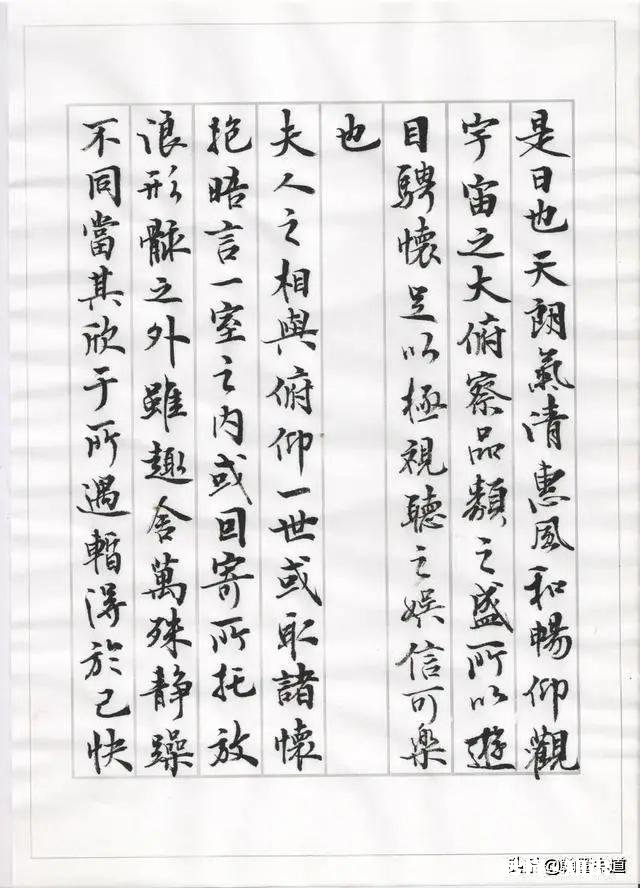 是日也天朗氣清惠風和暢仰觀
宇宙之大俯察品類之盛所以遊
目騁懷足以極視聽之娱信可樂
也
夫人之相與俯仰一世或取諸懷
抱晤言一室之内或回寄所托放
浪形骸之外雖趣舍萬殊静躁
不同當其欣于所遇暫得於己快